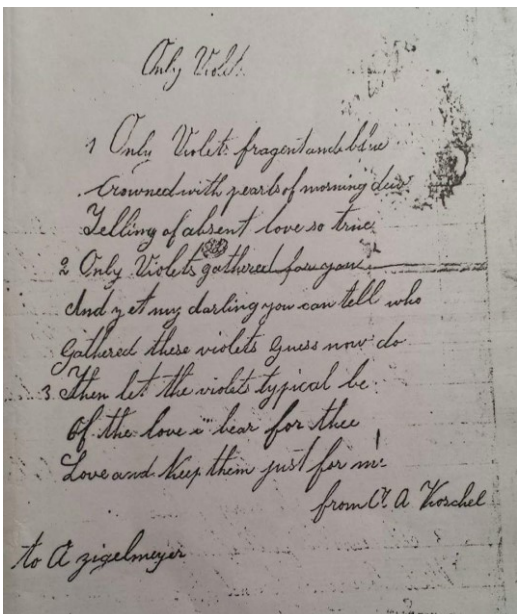 Only Violets
1 Only Violets fragent and blue
Crowned with pearls of morning dew
Telling of absent love so true
2 Only Violets gathered for you
And yet my darling you can tell who
gathered these violets guess now do
3. Then let the violets typical be
Of the love i bear for thee
Love and Keep them just for me
from A Koschel
to A zigelmeyer